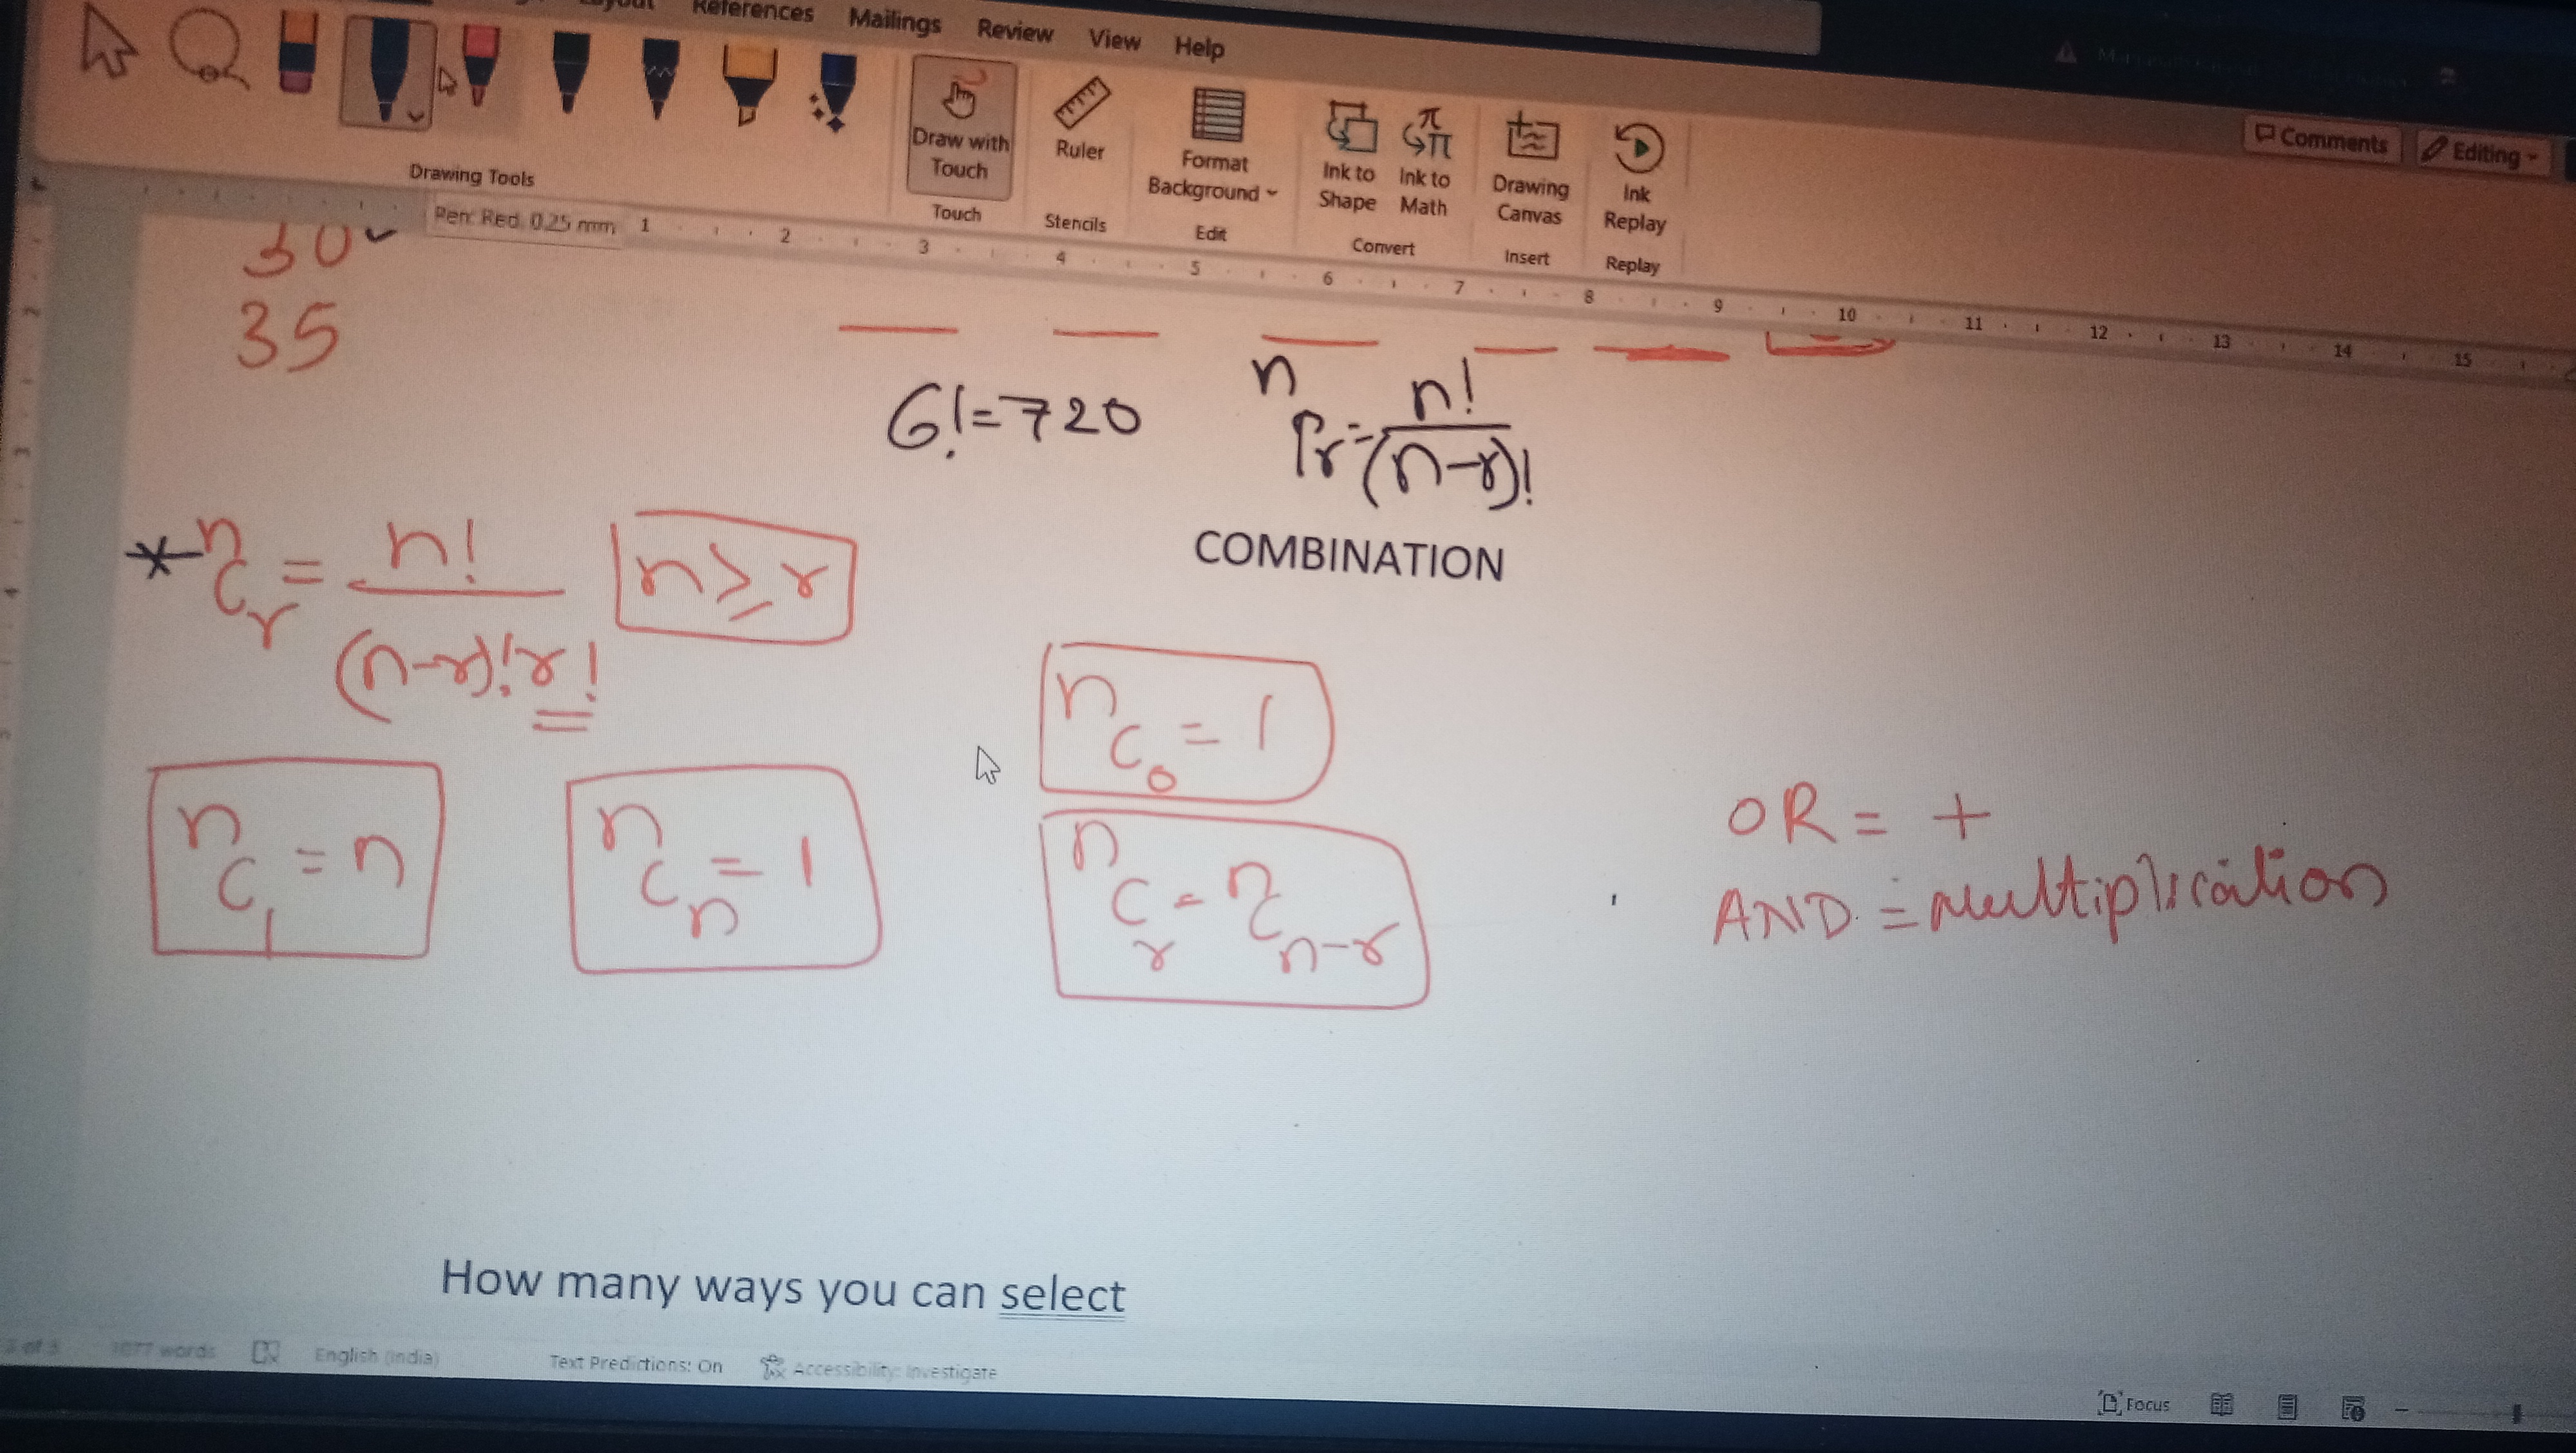 References Mailings Review View Help
Comments Editing
Draw with Touch Ruler Format Background Ink to Shape Ink to Math Drawing Canvas Ink Replay
Drawing Tools Touch Stencils Edit Convert Insert Replay
Pen: Red, 0.25 mm
1 2 3 4 5 6 7 8 9 10 11 12 13 14 15
30
35
6! = 720
nPr = n!/(n-r)!
COMBINATION
* nCr = n!/(n-r)!r! n ≥ r
nC0 = 1
nC1 = n nCn = 1 nCr = nCn-r
OR = +
AND = multiplication
How many ways you can select
1877 words English (India) Text Predictions: On Accessibility: Investigate Focus